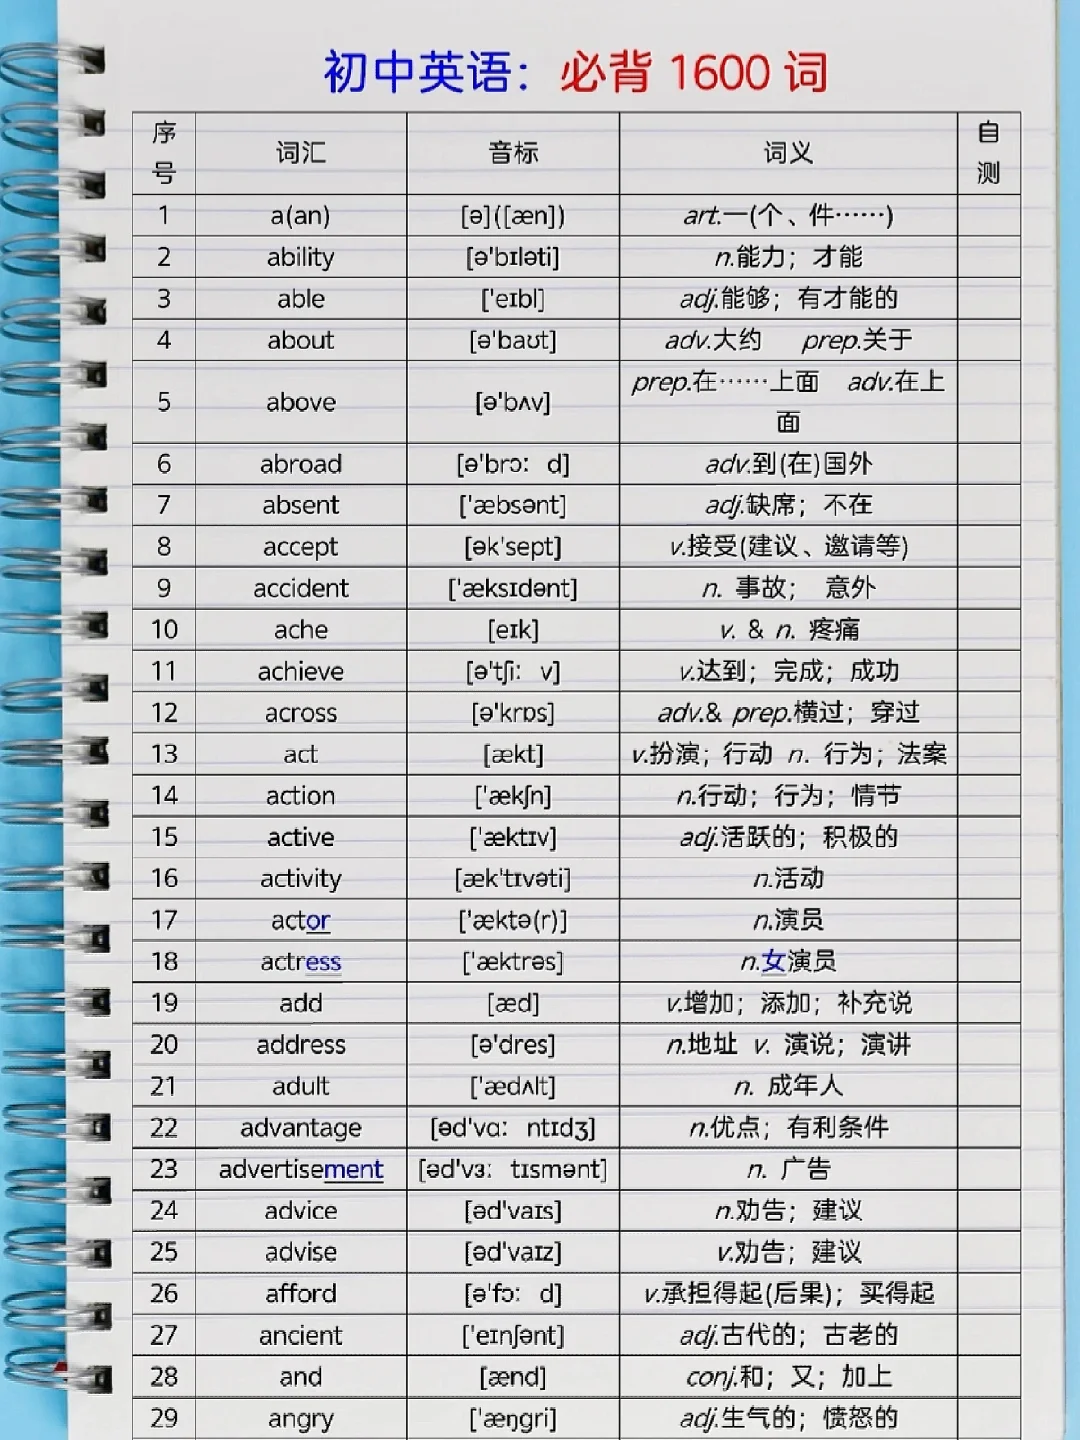 初中英语：必背 1600 词
序号 词汇 音标 词义 自测
1 a(an) [ə]([æn]) art.一(个、件……)
2 ability [ə'bɪləti] n.能力；才能
3 able ['eɪbl] adj.能够；有才能的
4 about [ə'baʊt] adv.大约 prep.关于
5 above [ə'bʌv] prep.在……上面 adv.在上面
6 abroad [ə'brɔː d] adv.到(在)国外
7 absent ['æbsənt] adj.缺席；不在
8 accept [ək'sept] v.接受(建议、邀请等)
9 accident ['æksɪdənt] n. 事故； 意外
10 ache [eɪk] v. & n. 疼痛
11 achieve [ə'tʃiː v] v.达到；完成；成功
12 across [ə'krɒs] adv.& prep.横过；穿过
13 act [ækt] v.扮演；行动 n. 行为；法案
14 action ['ækʃn] n.行动；行为；情节
15 active ['æktɪv] adj.活跃的；积极的
16 activity [æk'tɪvəti] n.活动
17 actor ['æktə(r)] n.演员
18 actress ['æktrəs] n.女演员
19 add [æd] v.增加；添加；补充说
20 address [ə'dres] n.地址 v. 演说；演讲
21 adult ['ædʌlt] n. 成年人
22 advantage [əd'vɑː ntɪdʒ] n.优点；有利条件
23 advertisement [əd'vɜː tɪsmənt] n. 广告
24 advice [əd'vaɪs] n.劝告；建议
25 advise [əd'vaɪz] v.劝告；建议
26 afford [ə'fɔː d] v.承担得起(后果)；买得起
27 ancient ['eɪnʃənt] adj.古代的；古老的
28 and [ænd] conj.和；又；加上
29 angry ['æŋgri] adj.生气的；愤怒的